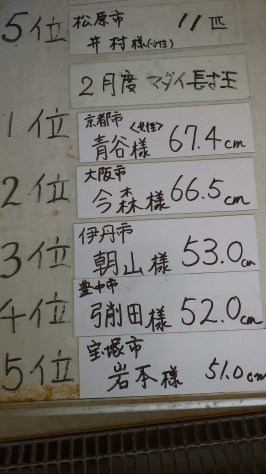 5位 松原市 11匹
井村様(女性)
2月度 マダイ長さ王
1位 京都市 <女性>
青谷様 67.4cm
2位 大阪市
今森様 66.5cm
3位 伊丹市
朝山様 53.0cm
4位 豊中市
引削田様 52.0cm
5位 宝塚市
岩本様 51.0cm